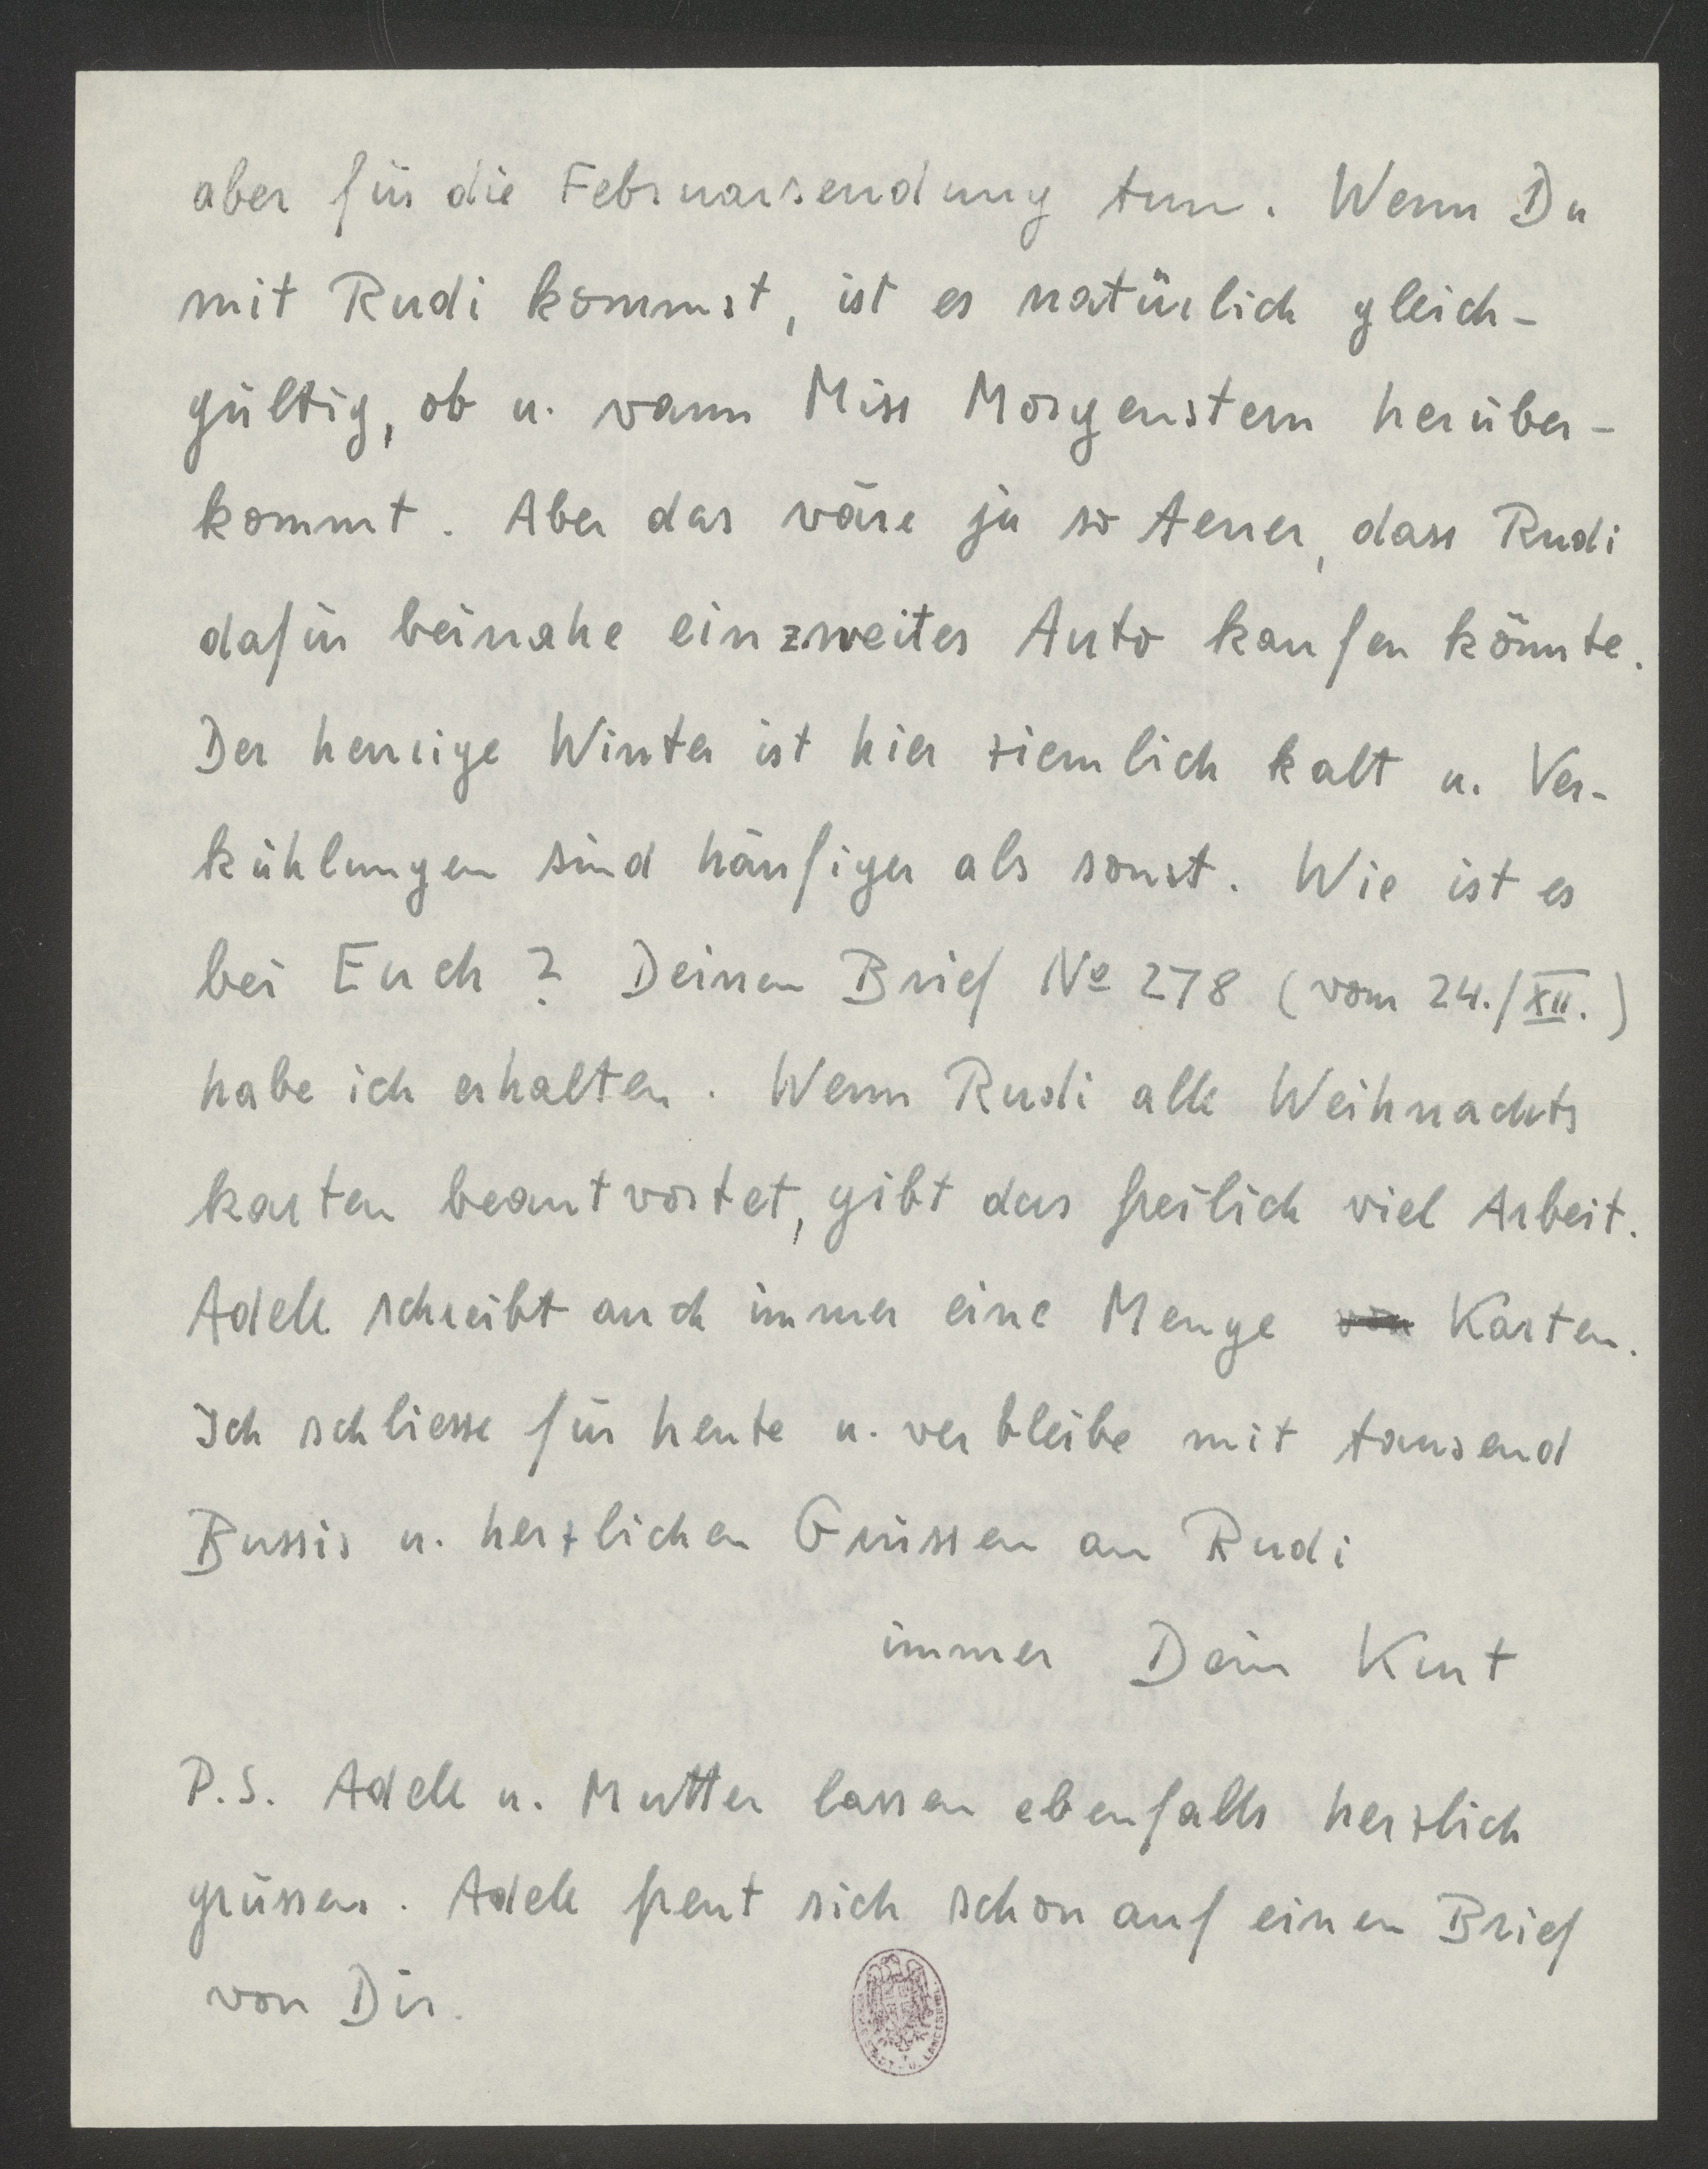 aber für die Februarsendung tun. Wenn Du
mit Rudi kommst, ist es natürlich gleich-
gültig, ob u. wann Miss Morgenstern herüber-
kommt. Aber das wäre ja so teuer, dass Rudi
dafür beinahe ein zweites Auto kaufen könnte.
Der heurige Winter ist hier ziemlich kalt u. Ver-
kühlungen sind häufiger als sonst. Wie ist es
bei Euch? Deinen Brief No 278 (vom 24./XII.)
habe ich erhalten. Wenn Rudi alle Weihnachts
karten beantwortet, gibt das freilich viel Arbeit.
Adele schreibt auch immer eine Menge von Karten.
Ich schliesse für heute u. verbleibe mit tausend
Bussis u. herzlichen Grüssen an Rudi
immer Dein Kurt
P.S. Adele u. Mutter lassen ebenfalls herzlich
grüssen. Adele freut sich schon auf einen Brief
von Dir.